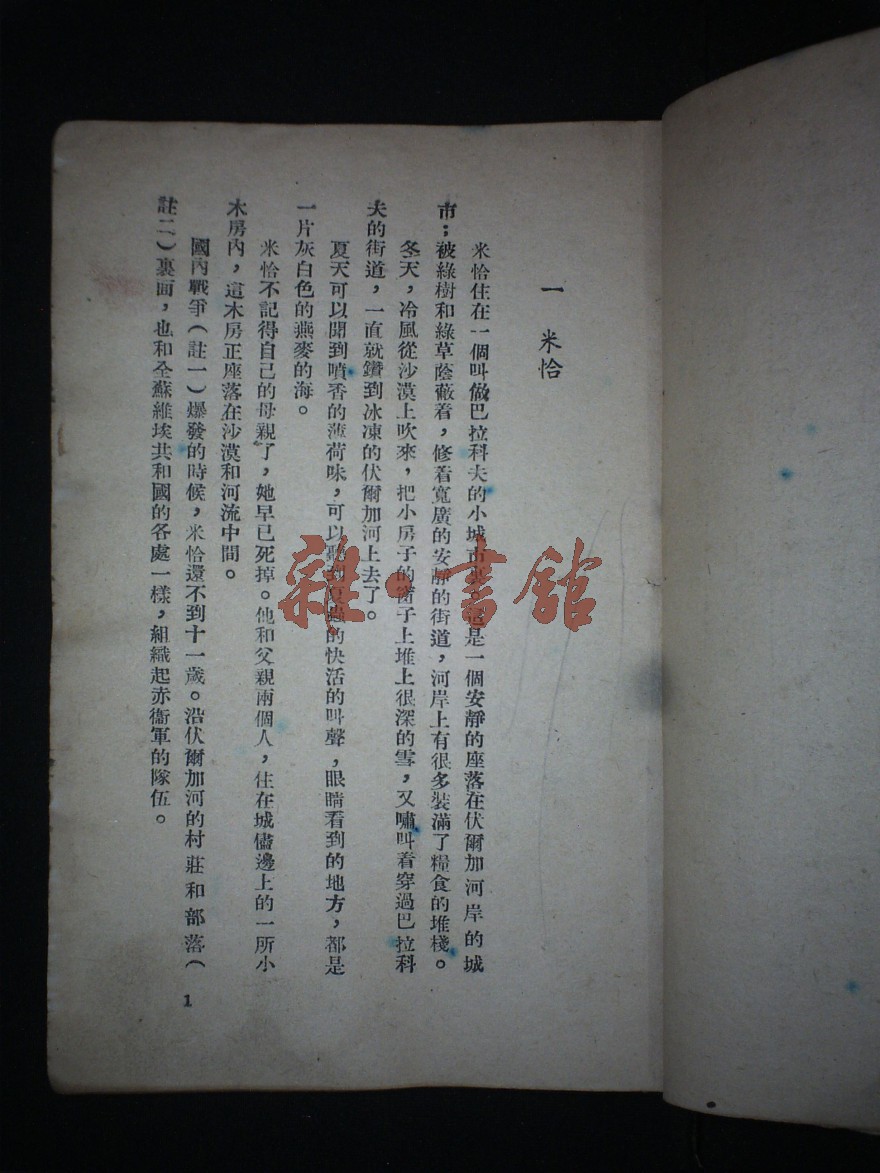 一 米恰
米恰住在一個叫做巴拉科夫的小城市裏，這是一個安靜的座落在伏爾加河岸的城
市；被綠樹和綠草蔭蔽着，修着寬廣的安靜的街道，河岸上有很多裝滿了糧食的堆棧。
冬天，冷風從沙漠上吹來，把小房子的窗子上堆上很深的雪，又嘯叫着穿過巴拉科
夫的街道，一直就鑽到冰凍的伏爾加河上去了。
夏天可以聞到噴香的薄荷味，可以聽到夏蟲的快活的叫聲，眼睛看到的地方，都是
一片灰白色的燕麥的海。
米恰不記得自己的母親了，她早已死掉。他和父親兩個人，住在城儘邊上的一所小
木房內，這木房正座落在沙漠和河流中間。
國內戰爭（註一）爆發的時候，米恰還不到十一歲。沿伏爾加河的村莊和部落（
註二）裏面，也和全蘇維埃共和國的各處一樣，組織起赤衞軍的隊伍。
1
雜·書館